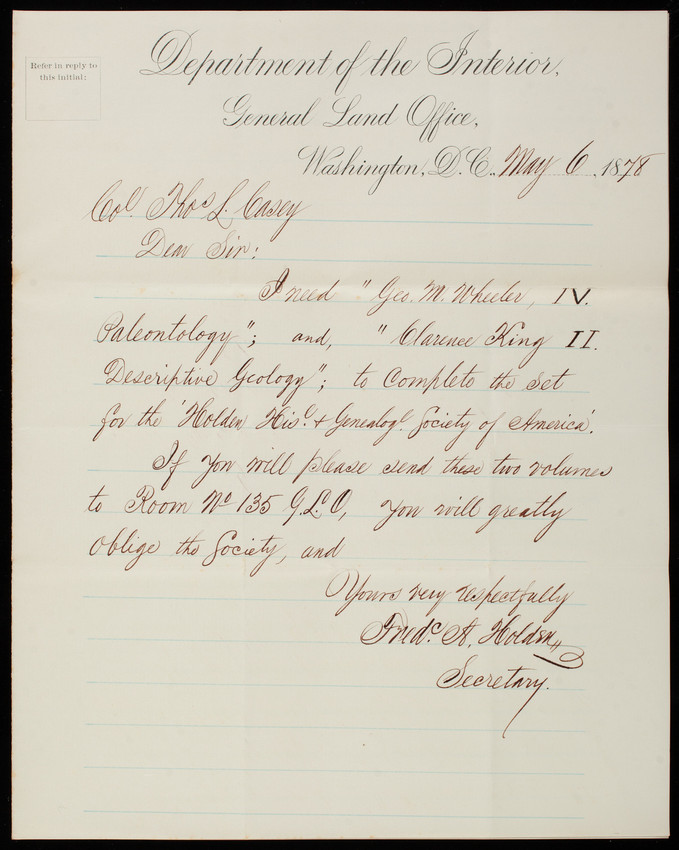 Refer in reply to
this initial:
Department of the Interior,
General Land Office,
Washington, D.C., May 6, 1878
Col Thos L. Casey
Dear Sir:
I need "Geo. M. Wheeler, IV.
Paleontology"; and, "Clarence King II.
Descriptive Geology"; to complete the set
for the 'Holden Hisl. & Genealogl. Society of America'.
If you will please send these two volumes
to Room No 135 G.L.O, you will greatly
oblige the Society, and
Yours very respectfully
Fredc. A. Holden,
Secretary.